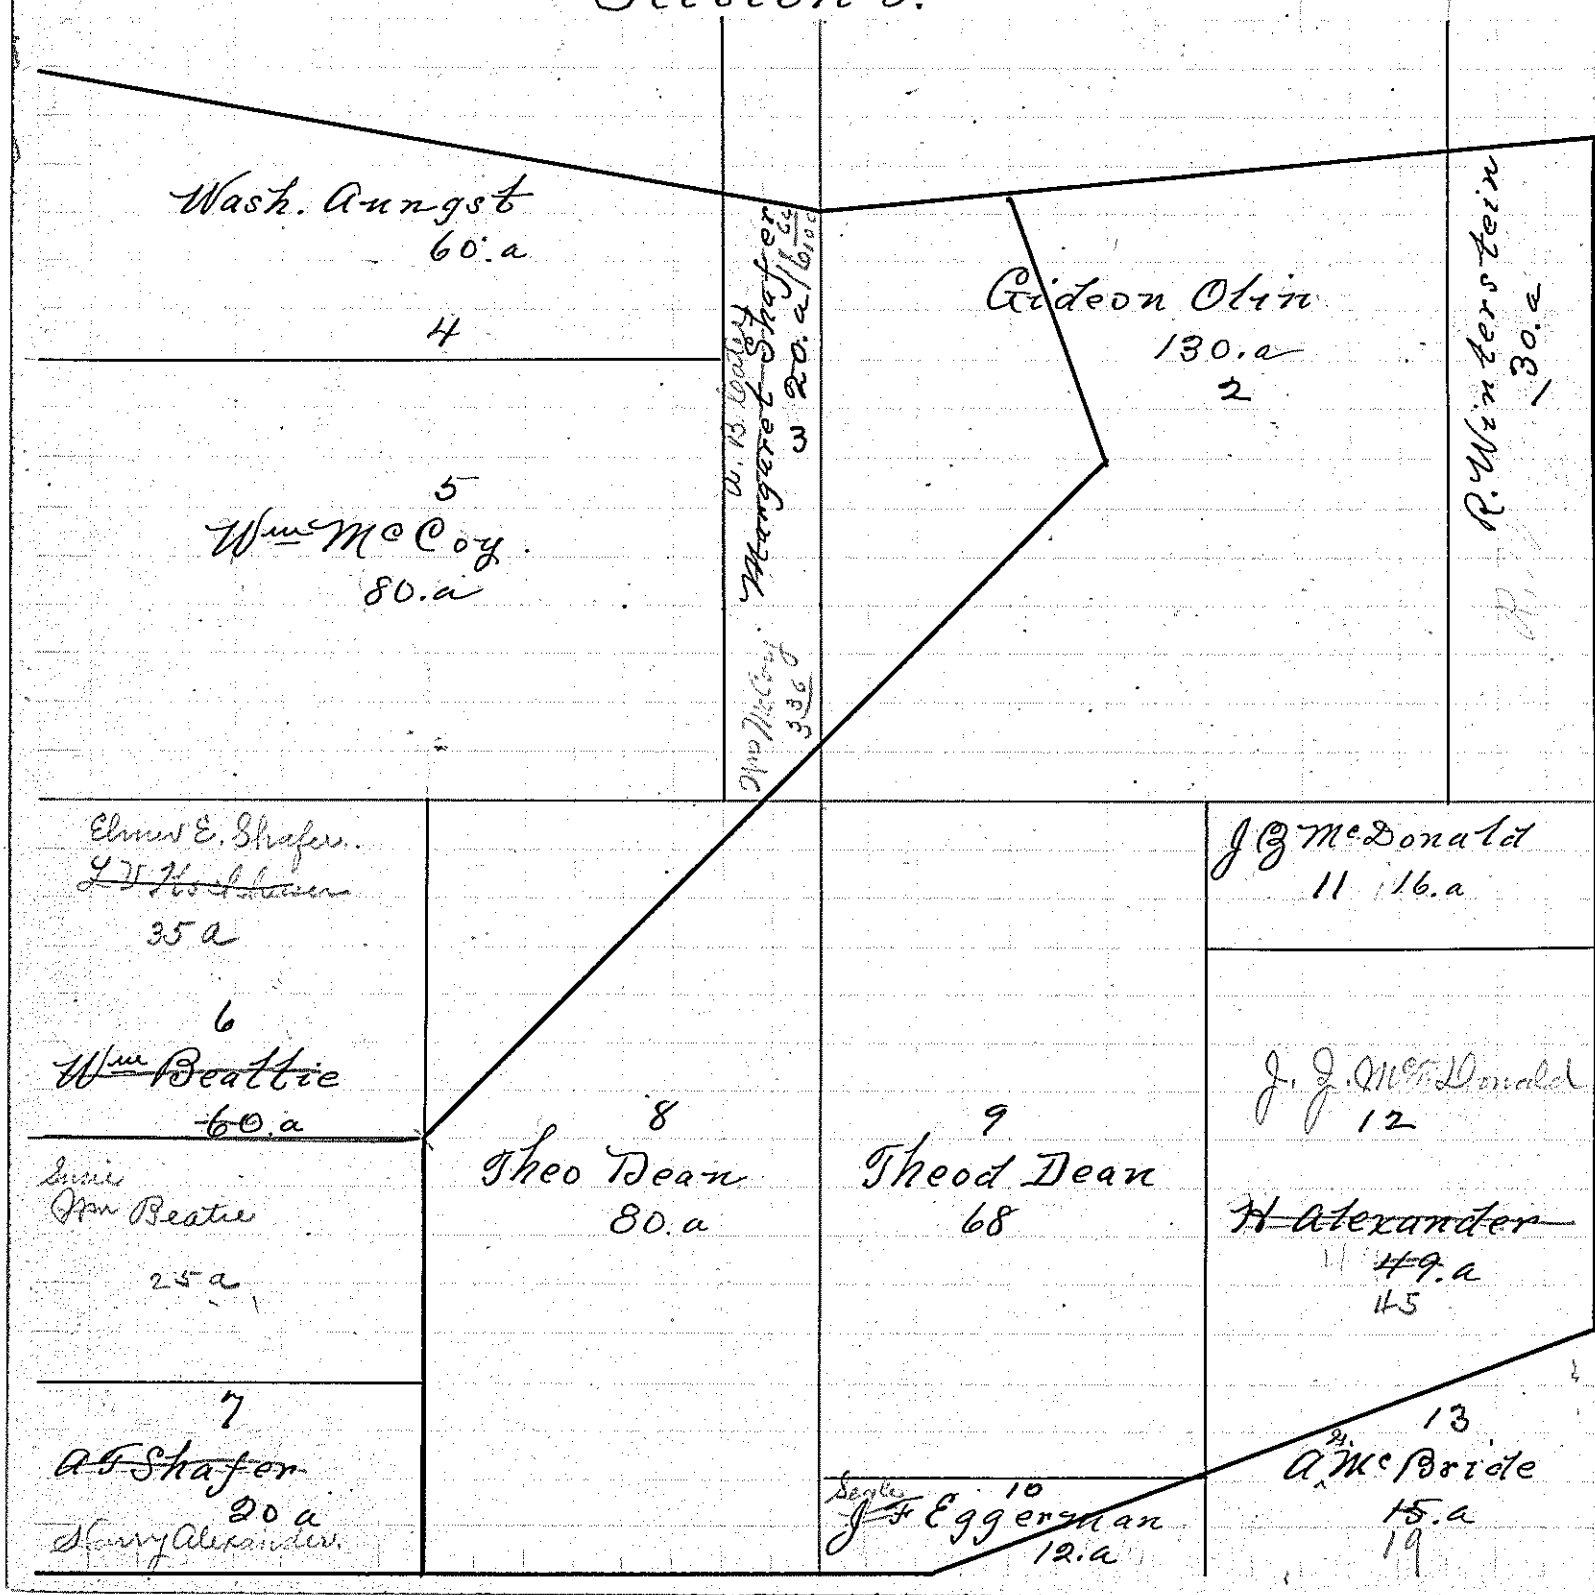 Wash. Aungst
60.a
4
5
Wm McCoy.
80.a
W. B.
Margaret Shafer
3 20.a
Wm McCoy
336
Gideon Olin
130.a
2
R. Winterstein
30.a
1
R.
Elmer E. Shafer.
35 a
6
Wm Beattie
60.a
Susie
Wm Beatie
25 a
7
A F Shafer
20 a
Harry Alexander.
8
Theo Dean
80.a
9
Theod Dean
68
10
J F Eggerman
12.a
J Z McDonald
11 16.a
J. Z. McDonald
12
H Alexander
49.a
45
13
A McBride
15.a
19